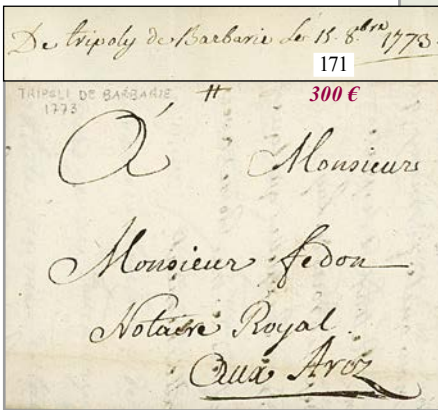 De tripoly de Barbarie Le 15. 8.bre 1773.
171
300 €
TRIPOLI DE BARBARIE
1773
#
A Monsieur
Monsieur fedon
Notaire Royal
Aux Arcz